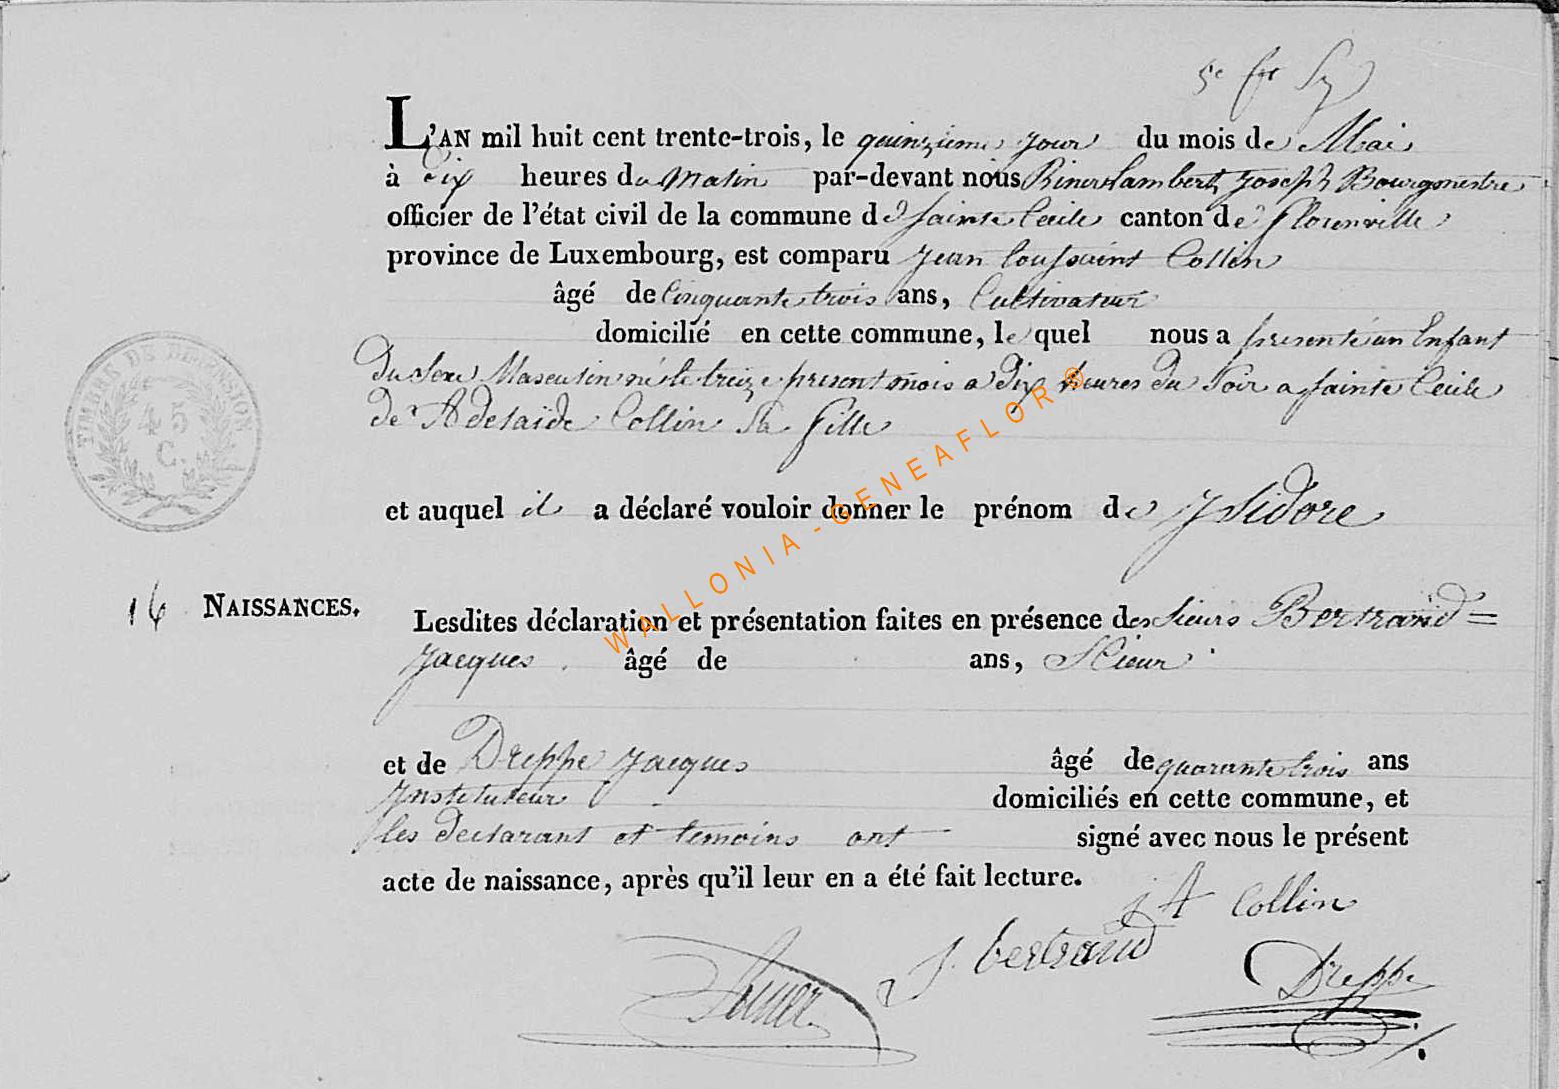 L'AN mil huit cent trente-trois, le quinzieme jour du mois de Mai
à dix heures du matin par-devant nous Lambert Joseph Bourgmestre
officier de l'état civil de la commune de Sainte Cecile canton de Florenville
province de Luxembourg, est comparu Jean Toussaint Collin
âgé de Cinquante trois ans, Cultivateur
domicilié en cette commune, le quel nous a presenté un Enfant
du Sexe Masculin né le treize present mois a dix heures du Soir a Sainte Cecile
de Adelaïde Collin Sa fille
et auquel il a déclaré vouloir donner le prénom de Ysidore
16 NAISSANCES.
Lesdites déclaration et présentation faites en présence des Sieurs Bertrand =
Jacques âgé de ans, Scieur
et de Dreppe Jacques âgé de quarante trois ans
Instituteur domiciliés en cette commune, et
les declarant et temoins ont signé avec nous le présent
acte de naissance, après qu'il leur en a été fait lecture.
Collin
J. bertrand
Dreppe
TIMBRE DE DIMENSION
45
C.
WALLONIA - GENEAFLOR®